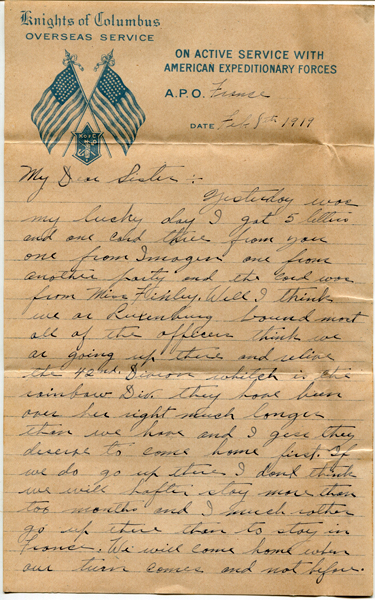 Knights of Columbus
OVERSEAS SERVICE
ON ACTIVE SERVICE WITH
AMERICAN EXPEDITIONARY FORCES
A.P.O. France
DATE Feb 8th 1919
K of C
My Dear Sister :-
Yesterday was
my lucky day I got 5 letters
and one card three from you
one from Imogen one from
another party and the Card was
from Miss Finley. Well I think
we ar Luxenburg bound most
all of the officers think we
ar going up there and relive
the 42nd. Divison whitch is the
rainbow Div. they have been
over her right much longer
then we have and I gess they
deserve to come home first. If
we do go up there I dont think
we will hafter stay more than
too months and I much rather
go up there then to stay in
France. We will come home when
our turn comes and not before.